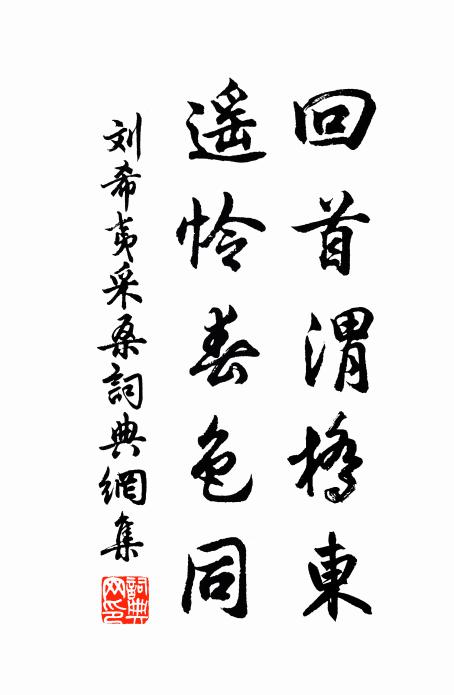 回首渭橋東
遥怜春色同
刘希夷采桑詞典網集
詞典网印